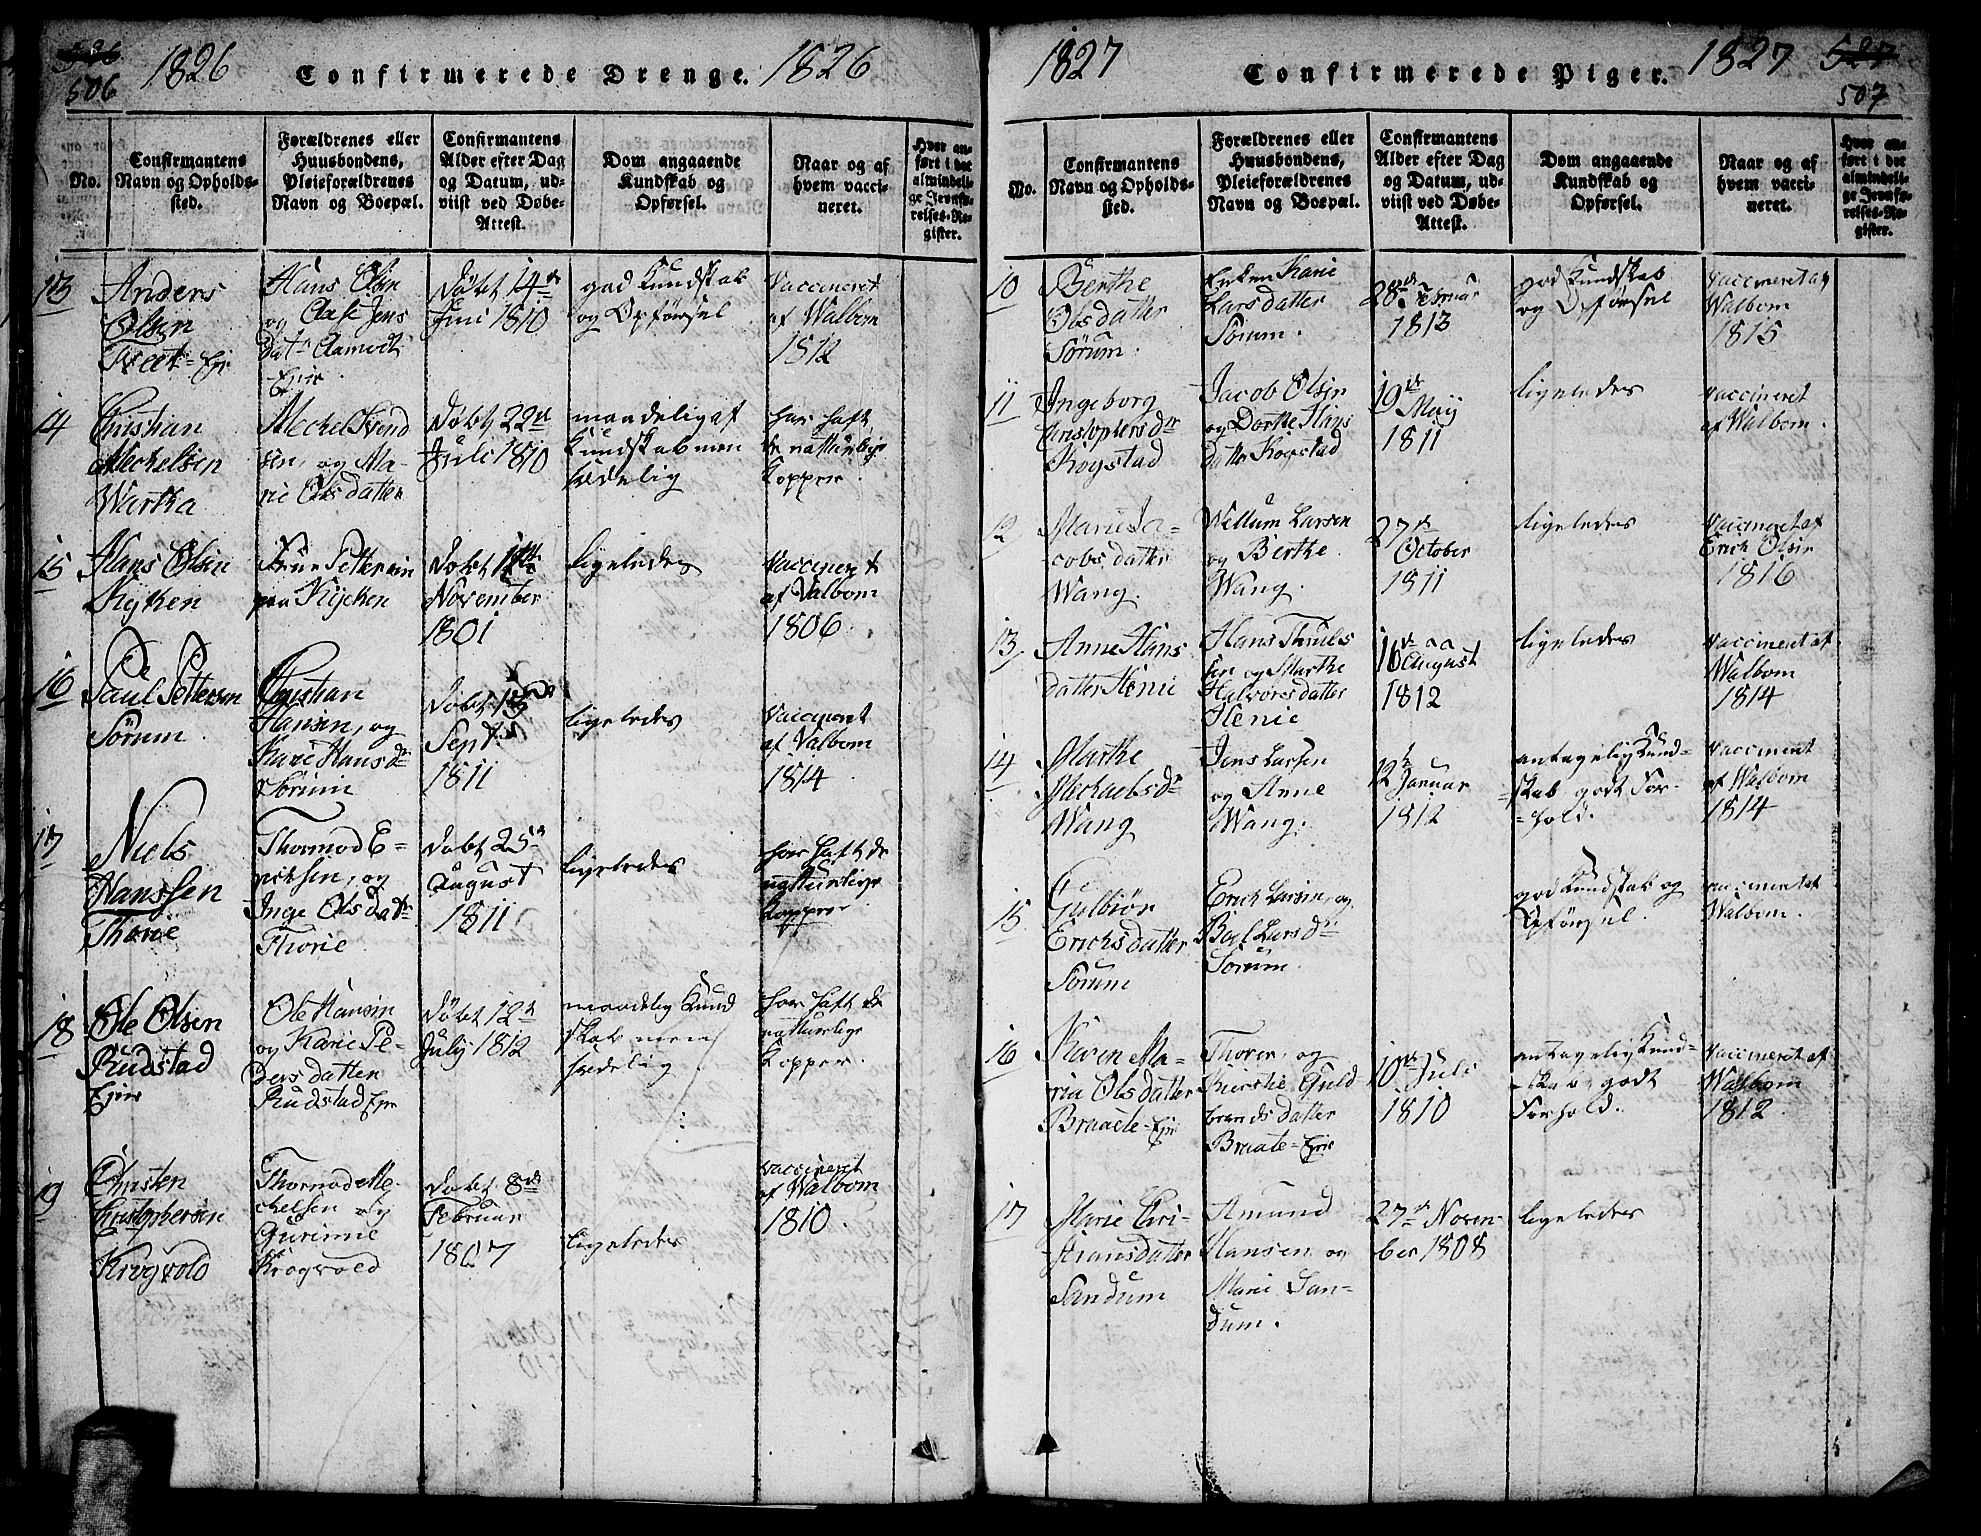 526
506
1826
Confirmerede Drenge.
1826
No.
Confirmantens
Navn og Opholds-
sted.
Forældrenes eller
Huusbondens,
Pleieforældrenes
Navn og Boepæl.
Confirmantens
Alder efter Dag
og Datum, ud-
viist ved Døbe-
Attest.
Dom angaaende
Kundskab og
Opførsel.
Naar og af
hvem vacci-
neret.
Hvor an-
ført i det
almindeli-
ge Jevnfø-
relses-Re-
gister.
13
Anders
Olsen
Tveet-Eje
Hans Olsen
og Aase Jens
Dat. Aamodt
Eier
Døbt 14de
Juni 1810
god Kundskab
og Opførsel
Vaccineret
af Walbom
1812
14
Christian
Meckelsen
Warka
Meckel Svend
sen, og Ma-
rie Olsdatter
Døbt 22de
Juli 1810
maadelig af
Kundskab men
sædelig
har haft
de naturlige
Kopper
15
Hans Olsen
Kycken
Petersen
paa Kycken
Døbt
November
1801
ligeledes
Vaccineret
af Valbom
1806
16
Paul Pettersen
Sørum
Christian
Hansen, og
Kari Hansdr
Sørum
Døbt
Septr
1811
ligeledes
Vaccineret
af Valbom
1814
17
Niels
Hanssen
Thorie
Thormod E-
richsen, og
Inge Olsdatr
Thorie
Døbt 25de
August
1811
ligeledes
har haft de
naturlige
Kopper
18
Ole Olsen
Rudstad
Eier
Ole Hansen
og Karie Pe-
dersdatter
Rudstad Eje
Døbt 12te
July 1812
maadelig Kund
skab men
sædelig
har haft de
naturlige
Kopper.
19
Christen
Christophersen
Krogvold
Thormod Me-
ckelsen og
Gurinie
Krogvold
Døbt 8de
Februar
1807
ligeledes
vaccineret
af Walbom
1810.
1827
Confirmerede Piger.
1827
527
507
No.
Confirmantens
Navn og Opholds-
sted.
Forældrenes eller
Huusbondens,
Pleieforældrenes
Navn og Boepæl.
Confirmantens
Alder efter Dag
og Datum, ud-
viist ved Døbe-
Attest.
Dom angaaende
Kundskab og
Opførsel.
Naar og af
hvem vacci-
neret.
Hvor an-
ført i det
almindeli-
ge Jevnfø-
relses-Re-
gister.
10
Berthe
Olsdatter
Sørum.
Enken Karie
Larsdatter
Sørum.
28de Februar
1813
god Kundskab
og Opførsel
vaccineret af
Walbom
1815
11
Ingeborg
Christophersdr
Kogstad
Jacob Olsen
og Dorthe Hans
datter Kogstad
19de
Maÿ
1811
ligeledes
vaccineret
af Walbom.
12
Marie Ja-
cobsdatter
Wang.
Wellum Larsen
og Berthe
Wang.
27de
October
1811
ligeledes
vaccineret af
Erich Olsen
1816
13
Anne Hans
datter Henie
Hans Truls
sen og Marthe
Halvorsdatter
Henie
16de
August
1812
ligeledes
vaccineret af
Walbom
1814
14
Marthe
Michaelsdr
Wang
Jens Larsen
og Anne
Wang.
12te
Januar
1812
antagelig Kund-
skab godt For-
hold.
vaccineret
af Walbom
1814
15
Gulbiør
Erichsdatter
Sørum
Erich Larsen, og
Boel Larsdr
Sørum.
god Kundskab og
Opførsel.
vaccineret af
Walbom.
16
Karen Ma-
ria Olsdatter
Braate-Eje
Thoren, og
Kierstie Guld
brandsdatter
Braate-Eje
10de Juli
1810
antagelig Kund-
skab, godt
Forhold.
vaccineret af
Walbom
1812.
17
Marie Chri-
stiansdatter
Sandum
Amund
Hansen og
Marie San-
dum.
27de Novem-
ber 1808
ligeledes